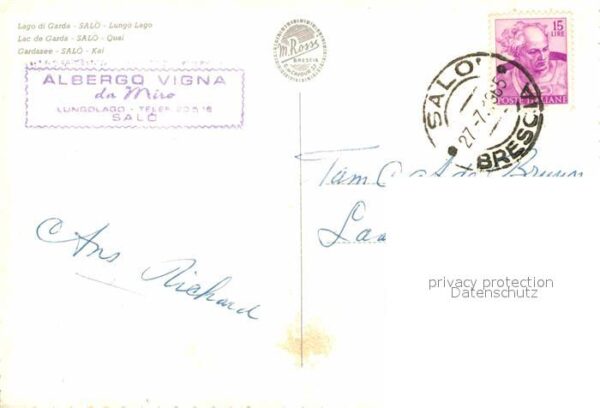 Lago di Garda - SALÒ - Lungo Lago
Lac de Garda - SALÒ - Quai
Gardasee - SALÒ - Kai
ALBERGO VIGNA
da Miro
LUNGOLAGO - TELEF.
SALÒ
M. Rossi
BRESCIA
15
LIRE
POSTE ITALIANE
SALO'
BRESCIA
Ans Richard
privacy protection
Datenschutz